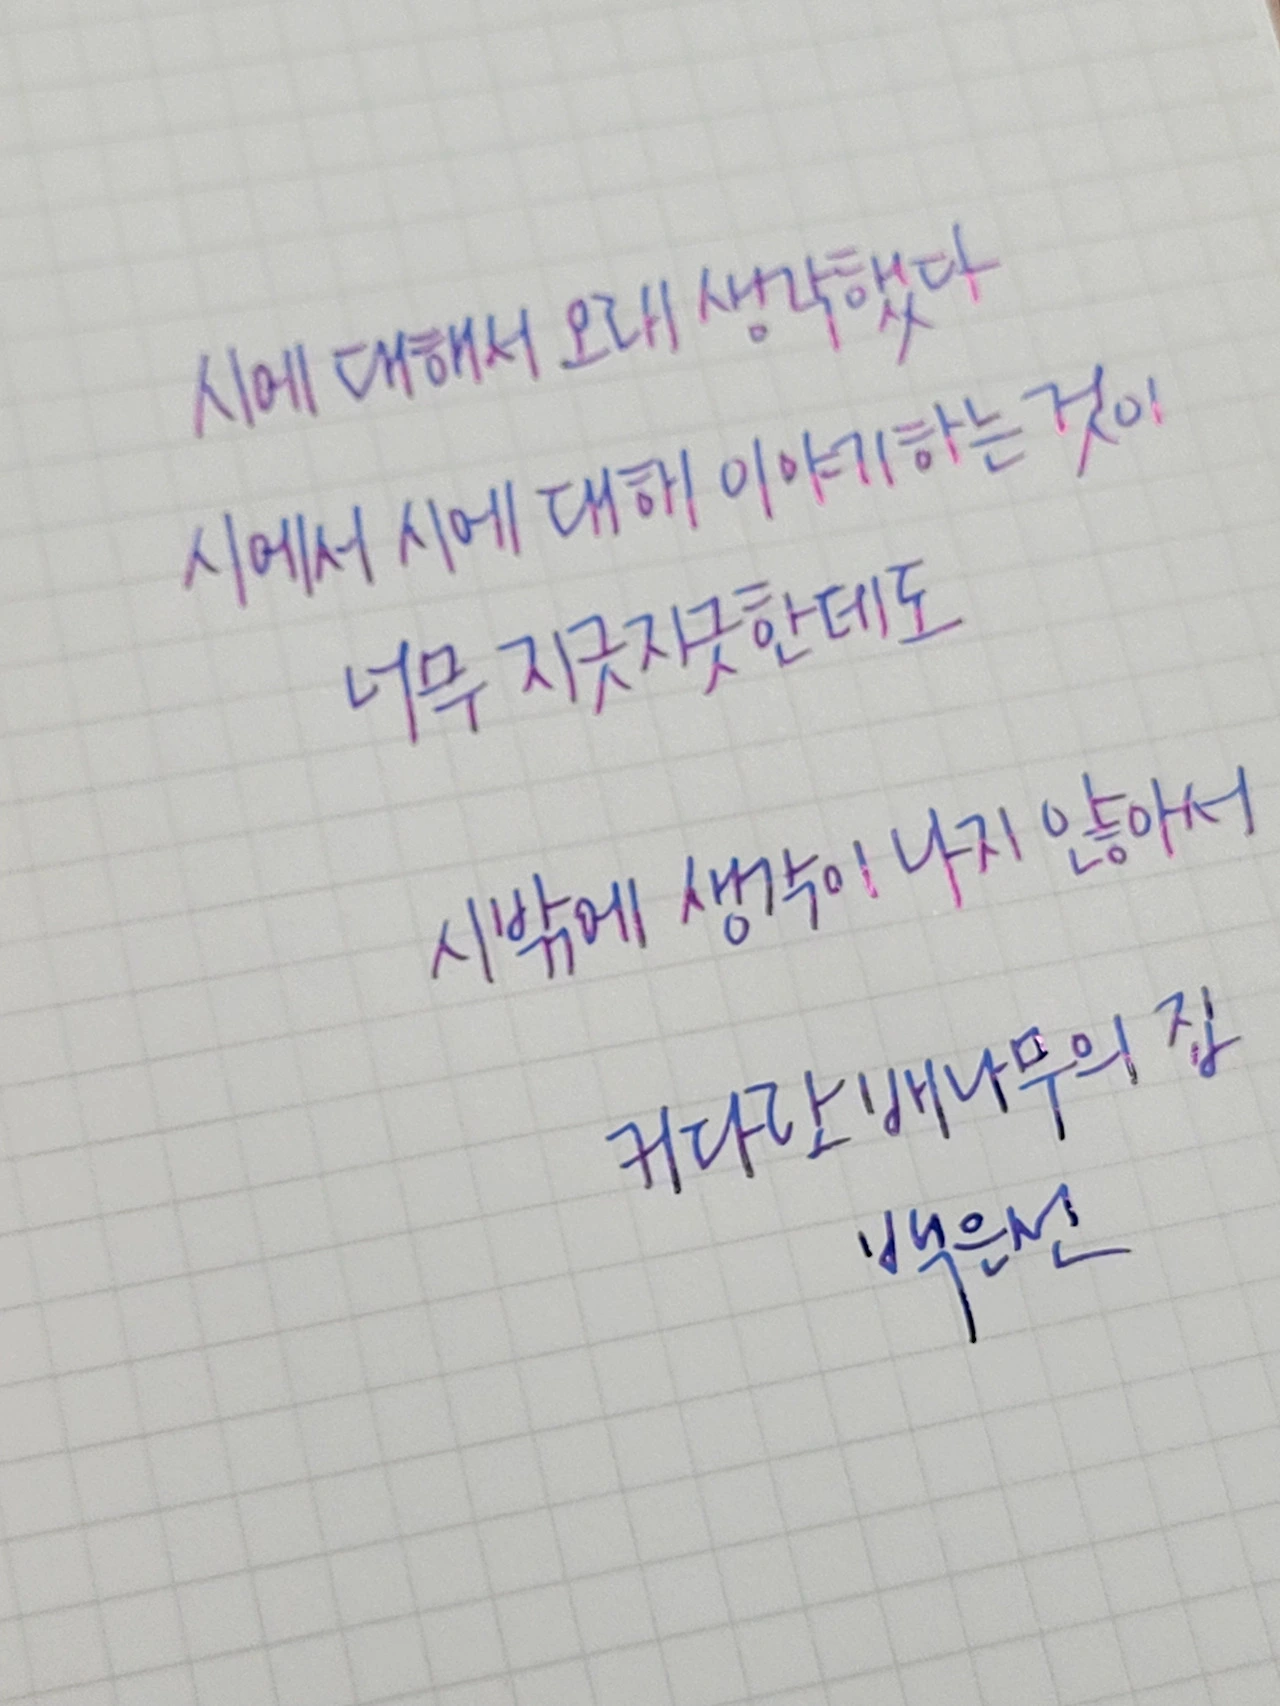 시에 대해서 오래 생각했다
시에서 시에 대해 이야기하는 것이
너무 지긋지긋한데도
시밖에 생각이 나지 않아서
커다란 배나무의 집
백은선